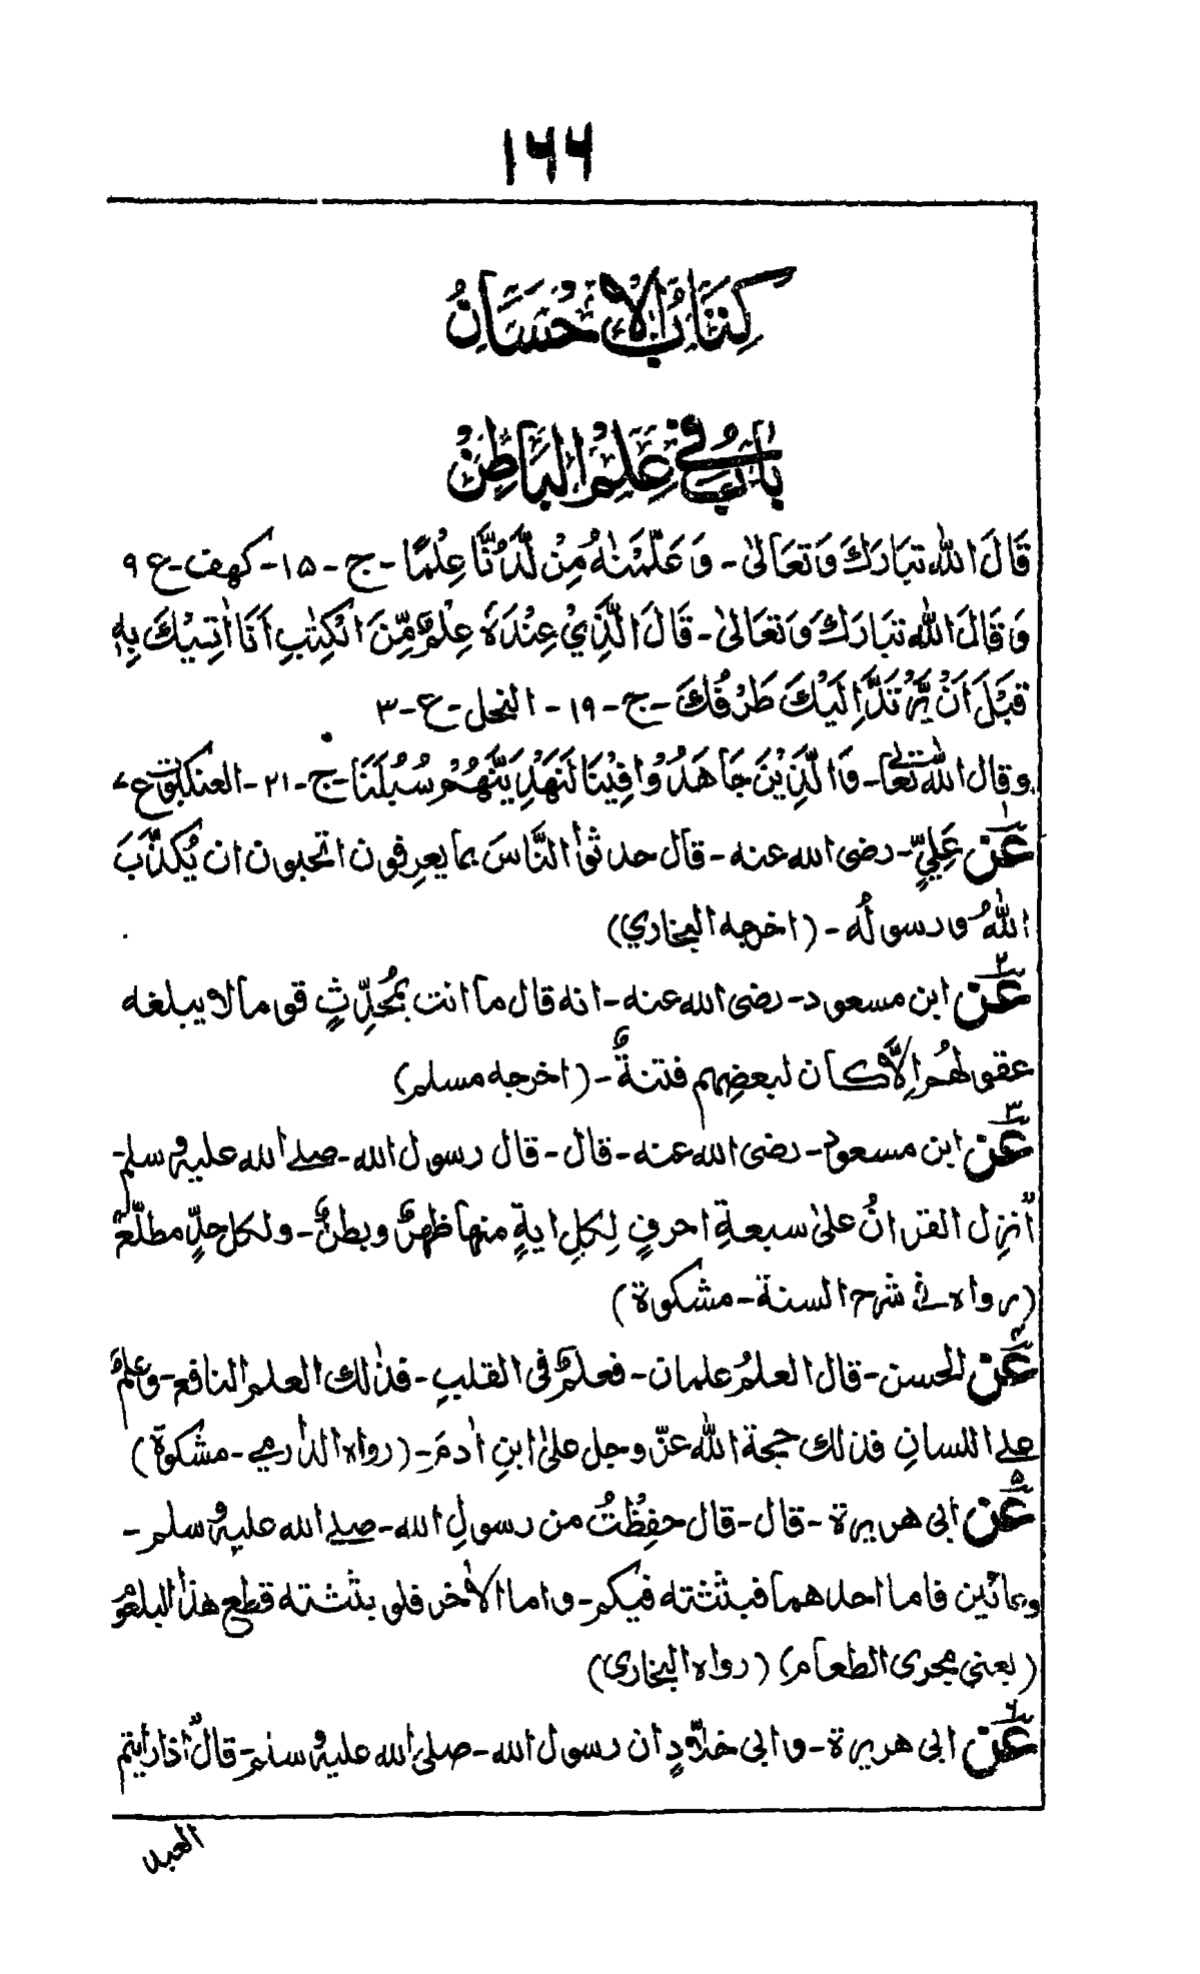 ۱۶۶
كِتَابُ الْاِحْسَانِ
بَابٌ فِي عِلْمِ الْبَاطِنْ
قَالَ اللهُ تبَارَكَ وَتعَالىٰ - وَعَلَّمْنٰهُ مِنْ لَّدُنَّا عِلْمًا - ج - ۱۵ - كهف - ع ۹
وَقَالَ اللهُ تبَارَكَ وَتعَالىٰ - قَالَ الَّذِيْ عِنْدَهٗ عِلْمٌ مِّنَ الْكِتٰبِ اَنَا اٰتِيْكَ بِهٖ
قَبْلَ اَنْ يَّرْتَدَّ اِلَيْكَ طَرْفُكَ - ج - ۱۹ - النمل - ع - ۳
وقال الله تعالىٰ - وَالَّذِيْنَ جَاهَدُوْا فِيْنَا لَنَهْدِيَنَّهُمْ سُبُلَنَا - ج - ۲۱ - العنكبوت ع ۷
۱ عَنْ عَلِيٍّ - رضى الله عنه - قال حدثوا النَّاسَ بما يعرِفون اتحبون ان يُكذَّبَ
اللهُ ورسولُه - (اخرجه البخاري)
۲ عَنْ ابن مسعود - رضى الله عنه - انه قال ما انت بمُحدِّثٍ قوما لا يبلغه
عقولهُم اِلَّا كان لبعضِهم فتنةٌ - (اخرجه مسلم)
۳ عَنْ ابن مسعود - رضى الله عنه - قال - قال رسول الله - صلے الله عليه وسلم -
اُنزِل القراٰنُ علىٰ سبعةِ احرفٍ لِكلِ اٰيةٍ منها ظهرٌ وبطنٌ - ولكل حدٍّ مطلّعٌ
(رواه فے شرح السنة - مشكوة)
۴ عَنْ الحسن - قال العلمُ علمان - فعلمٌ فى القلبِ - فذٰلك العلم النافع - وعلمٌ
علے اللسانِ فذلك حجة الله عزّ وجل علىٰ ابنِ اٰدمَ - (رواه الدارمے - مشكوة)
۵ عَنْ ابى هريرة - قال - قال حفِظْتُ من رسولِ الله - صلے الله عليه وسلم -
وعائين فاما احدهما فبثثته فيكم - واما الاٰخر فلو بثثته قطع هذا البلعوم
(يعنى مجرى الطعام) (رواه البخارى)
۶ عَنْ ابى هريرة - وابى خلّادٍ ان رسول الله - صلى الله عليه وسلم - قال اذا رايتم
العبد